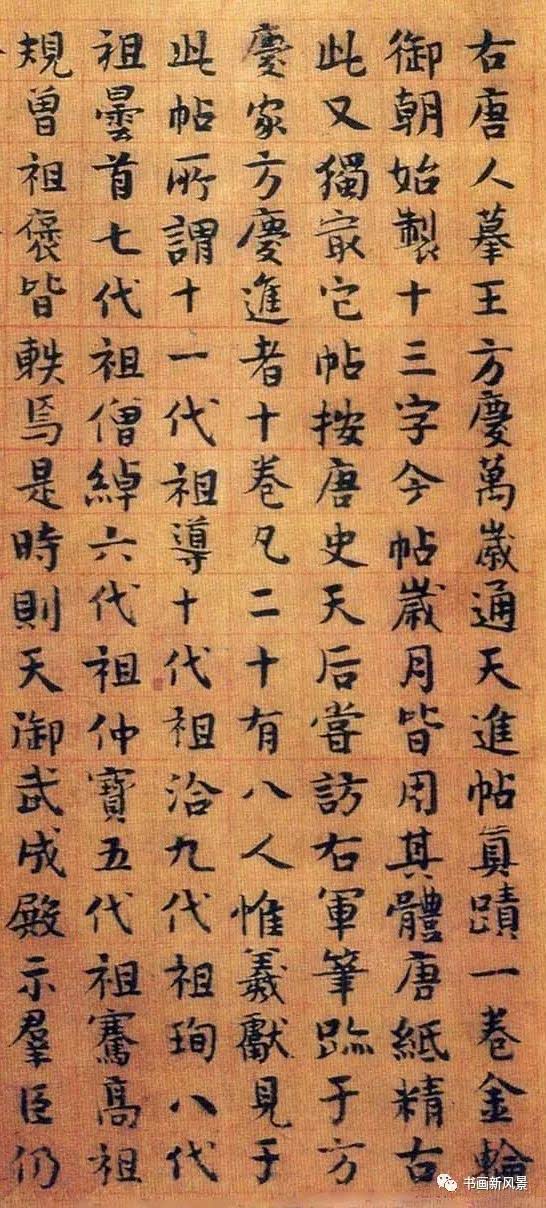 右唐人摹王方慶萬歲通天進帖真蹟一卷金輪
御朝始製十三字今帖歲月皆用其體唐紙精古
此又獨冣它帖按唐史天后嘗訪右軍筆跡于方
慶家方慶進者十卷凡二十有八人惟羲獻見于
此帖所謂十一代祖導十代祖洽九代祖珣八代
祖曇首七代祖僧綽六代祖仲寶五代祖騫高祖
規曾祖褒皆軼焉是時則天御武成殿示羣臣仍
书画新风景